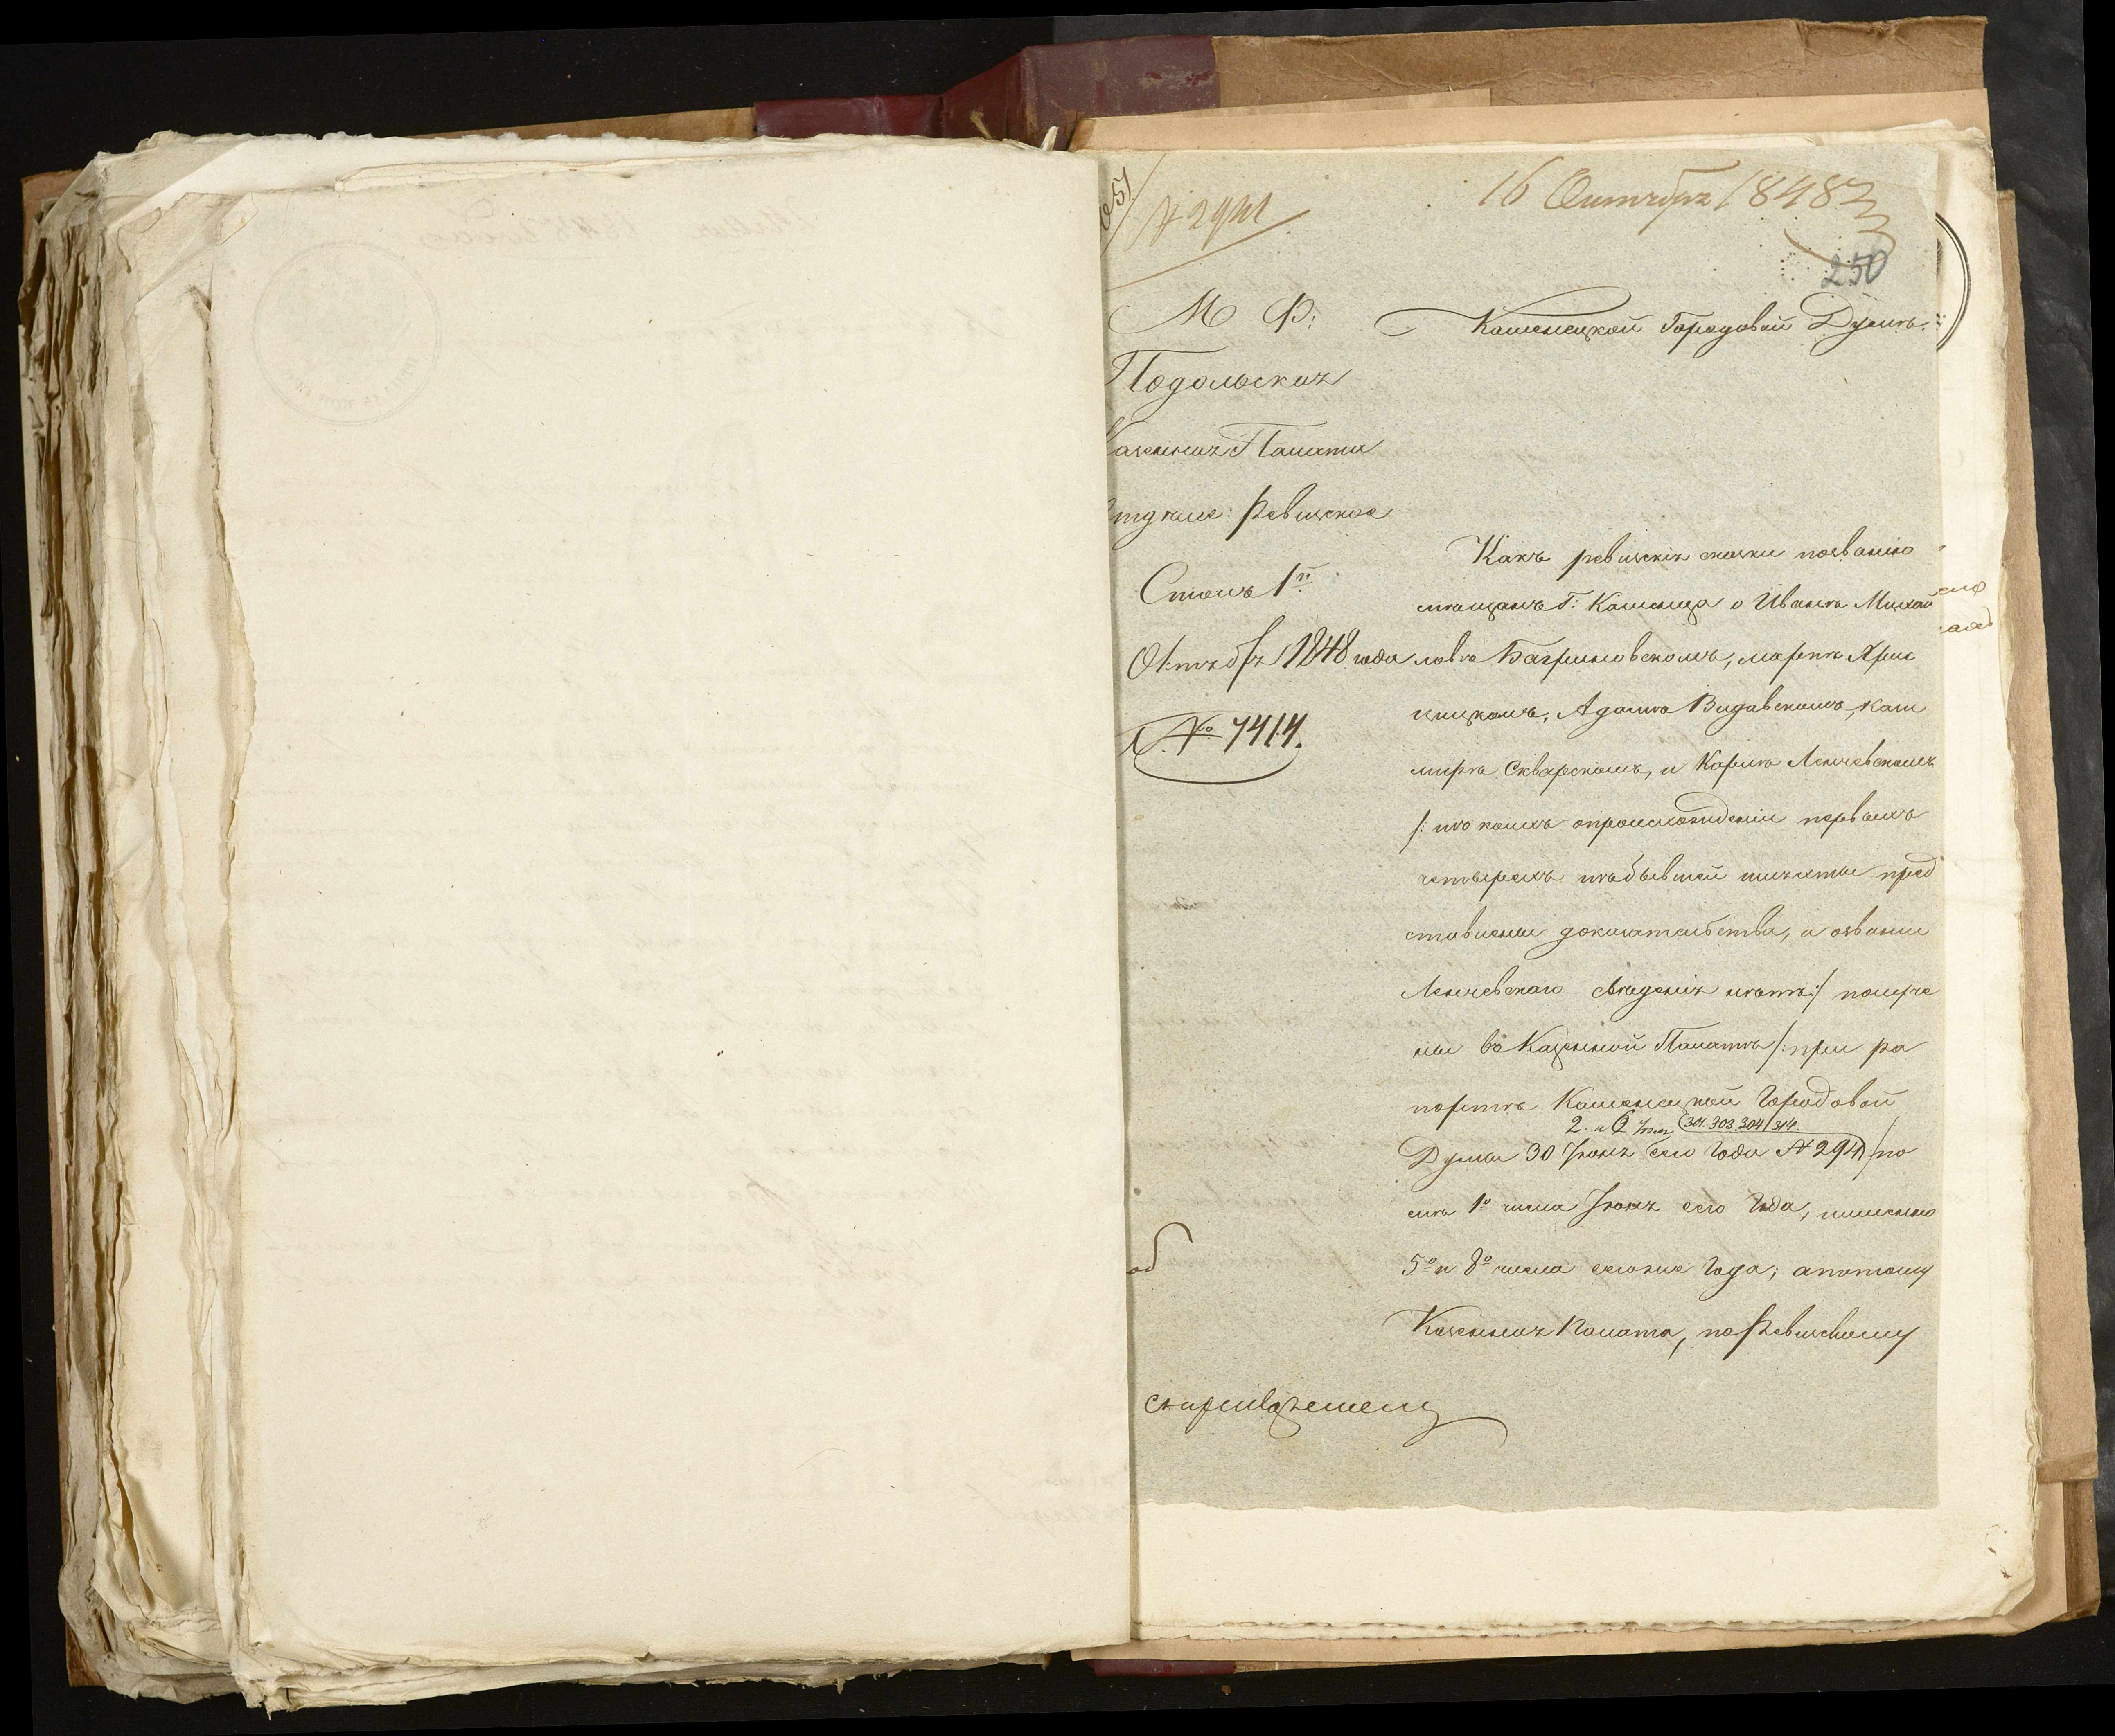 № 2941
16 Октября 1848
250
М Ф:
Подольская
Казенная Палата
Отделе: Ревизское
Столъ 1й
Октября 1848 года
№ 7414.
Каменецкой Городовой Думѣ.
Какъ ревизскія сказки позванію
мѣщанъ Г: Каменца о Иванѣ Михай
ловѣ Багриновскомъ,
Адамѣ Видавскомъ, Кази
мирѣ Скварскомъ, и Карлѣ Ленчевскомъ
/: изъ коихъ опроисхожденіи первыхъ
четырехъ изъбывшей шляхты пред
ставлены доказательства, а озваніи
Ленчевскаго сведенія нѣтъ :/ получе
ны въ Казенной Палатѣ /: при ра
портѣ Каменецкой Городовой
2. и 6 Іюля 301. 303. 304 / 314.
Думы 30 Іюня сего Года № 294 :/ по
слѣ 1го числа Іюня сего Года, именно
5го и 8го числа сегоже Года; апотому
Казенная Палата, по Ревизскому
об